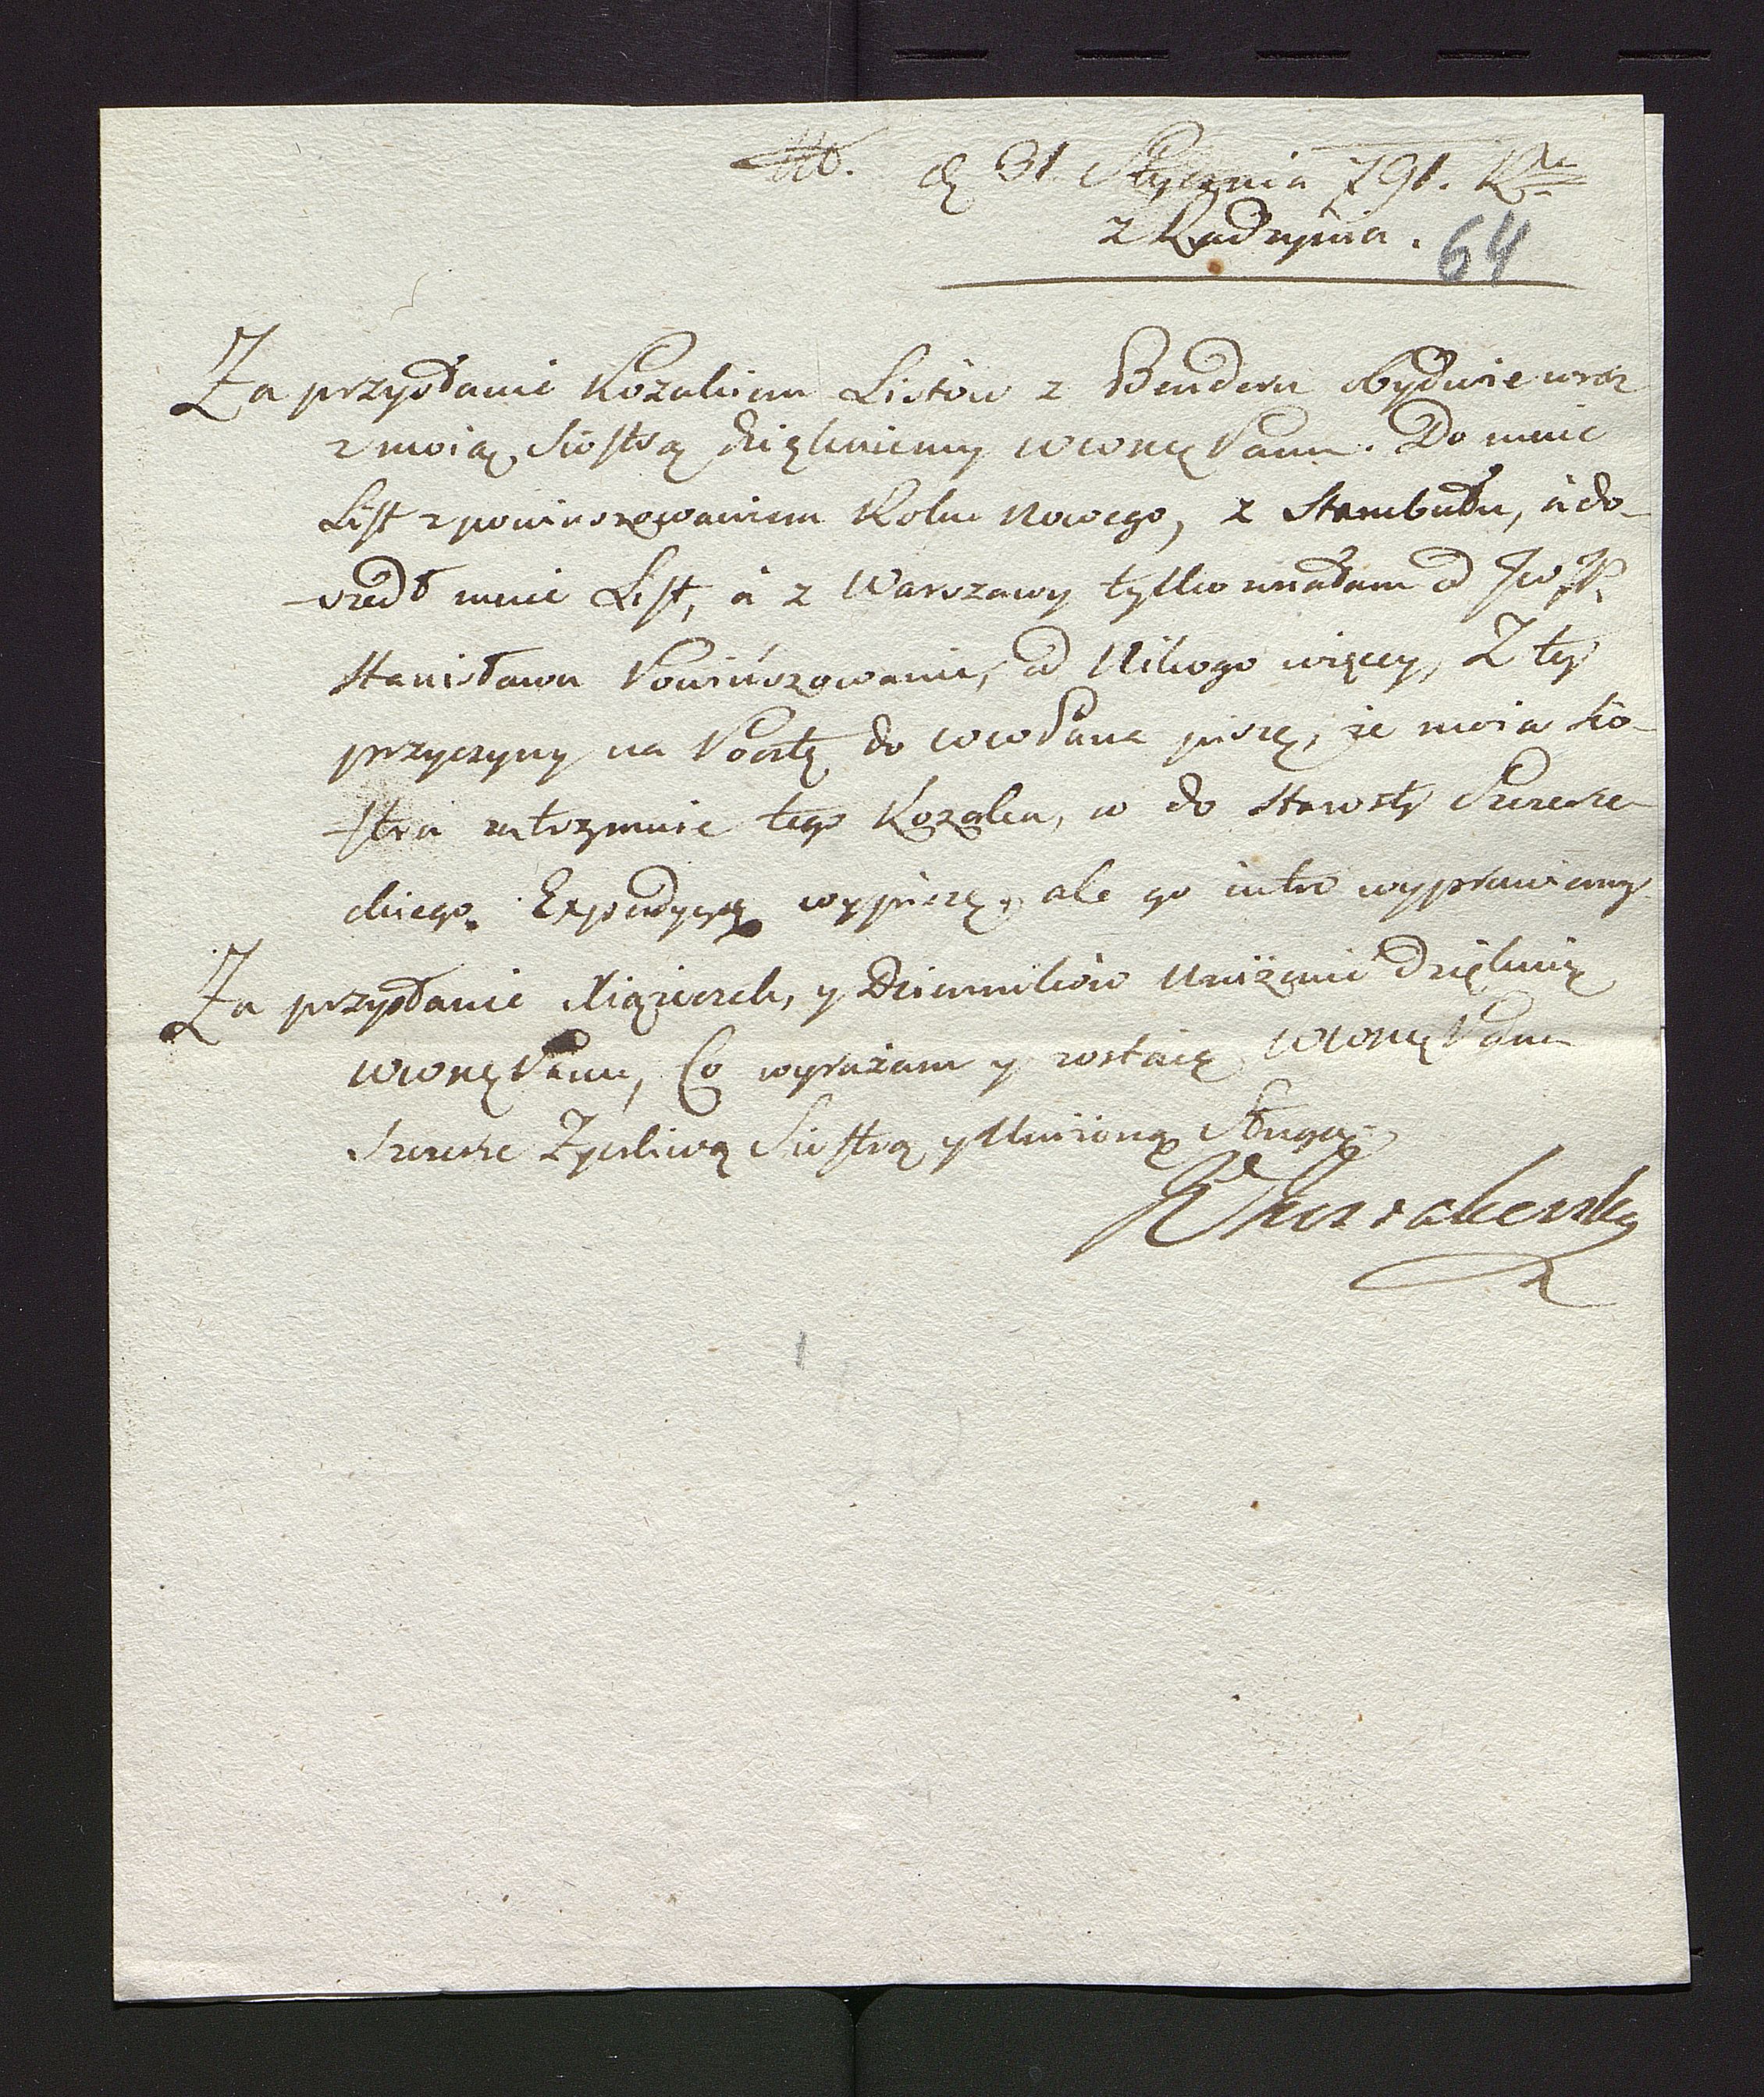 d 31 Stycznia 791. Ru
z Radynia. 64
Za przysłanie Kozakiem Listów z Benderu obydwie wraz
z moią Siostrą dziękuiemy WWMę Panu. Do mnie
List z powinszowaniem Roku Nowego, z Stambułu, á do-
-szedł mnie List, á z Warszawy tylko miałam od JW JP
Stanisława Powinszowanie, od Nikogo więcy, Z tey
przyczyny na Pocztę do WWPana piszę, że moia Sio-
-stra zatrzymuie tego Kozaka, w do Starosty Szczere
ckiego Expedycyą wypiszę, ale go iutro wyprawiemy
Za przysłanie Xiążeczek, y Dzienników Uniżenie dziękuię
WWMę Panu, Co wyrażam y zostaię WWMę Panu
Szczerze Życzliwą Siostrą y Uniżoną Sługą